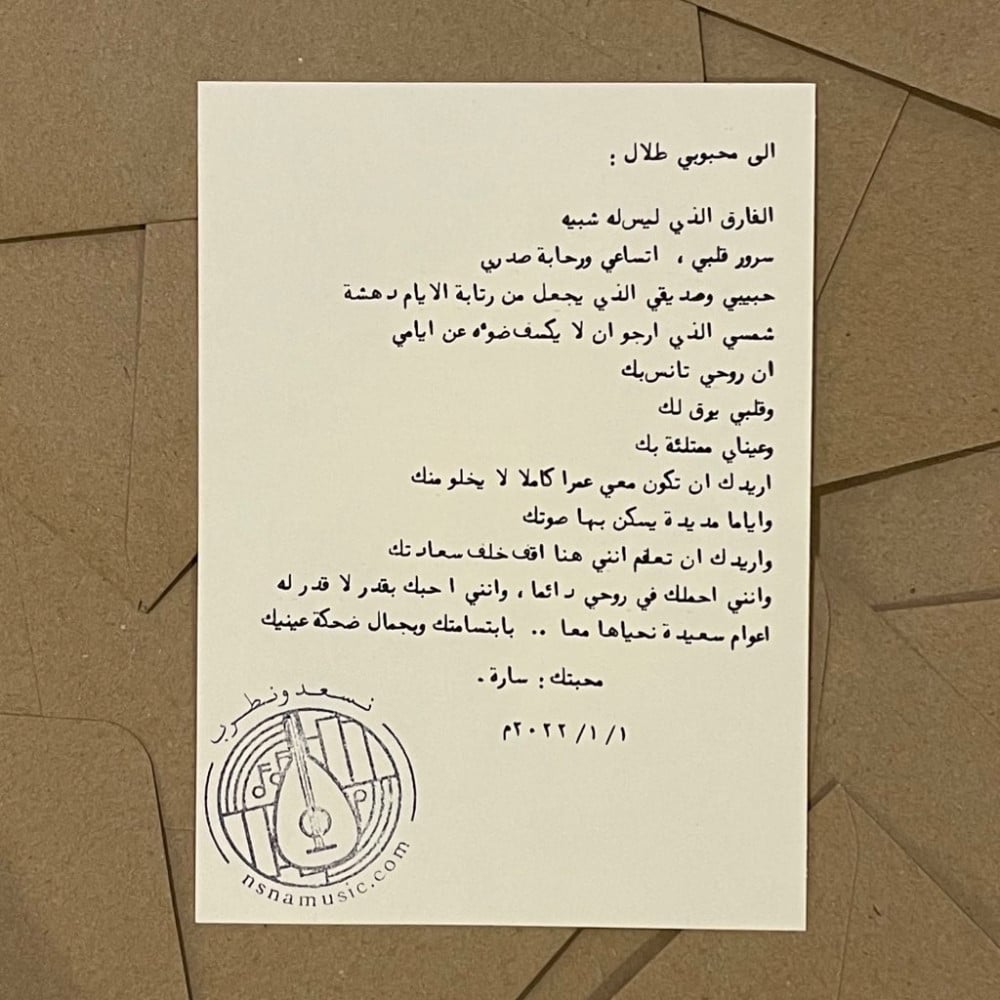 الى محبوبي طلال :
الفارق الذي ليس له شبيه
سرور قلبي ، اتساعي ورحابة صدري
حبيبي وصديقي الذي يجعل من رتابة الايام دهشة
شمسي الذي ارجو ان لا يكسف ضوئه عن ايامي
ان روحي تانس بك
وقلبي يرق لك
وعيناي ممتلئة بك
اريدك ان تكون معي عمرا كاملا لا يخلو منك
واياما مديدة يسكن بها صوتك
واريدك ان تعلم انني هنا اقف خلف سعادتك
وانني احملك في روحي دائما ، وانني احبك بقدر لا قدر له
اعوام سعيدة نحياها معا .. بابتسامتك وبجمال ضحكة عينيك
محبتك : سارة .
١/١/٢٠٢٢م
نسعد ونطرب
nsnamusic.com